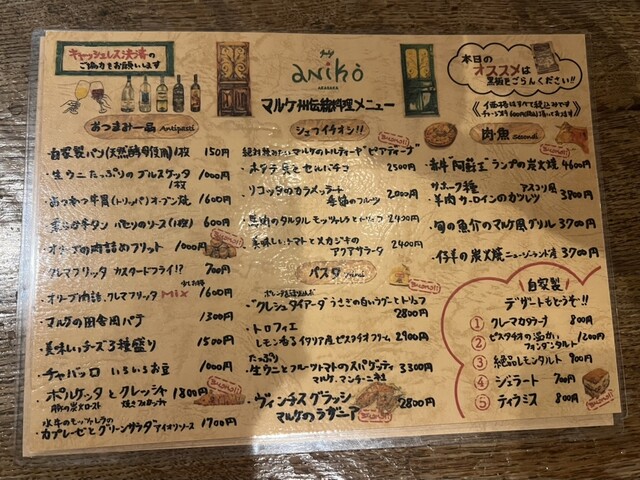 キャッシュレス決済の
ご協力をお願いします
aniko
ARAKAKA
マルケ州伝統料理メニュー
本日の
オススメは
黒板をごらんください!!
《価格はすべて税込みです
おつまみ一品 Antipasti
・自家製パン(天然酵母使用)1枚 150円
・生ウニたっぷりのブルスケッタ
1枚 1000円
オーブン焼 1600円
・柔らか牛タン パセリのソース(1枚) 600円
・オリーブの肉詰めフリット 1000円
・クレマフリッタ カスタードフライ!? 700円
・オリーブ肉詰、クレマフリッタ Mix 1600円
・マルケの田舎風パテ 1300円
・美味しいチーズ3種盛り 1500円
・チャバッロ いろいろお豆 1000円
・ポルケッタとクレッシャ 1800円
豚の炭火ロースト
水牛のモッツァレラの
カプレーゼとグリーンサラダ アイオリソース 1700円
シェフイチオシ!!
絶対読みたいマルケのトルティーヤ"ピアディーナ"
・ホタテ貝とセルバチコ 2500円
・リコッタのカラメッラート
季節のフルーツ 2000円
・馬肉のタルタル モッツァレラとトリュフ 2400円
・美味しいトマトとメカジキの
アクアサラータ 2400円
パスタ Primi
・クレシュタイアーダ うさぎの白いラグーとトリュフ
2800円
・トロフィエ
レモン香るイタリア産ピスタチオクリーム 2900円
たっぷり
・生ウニとフルーツトマトのスパゲッティ 3300円
マルケ、マンチーニ社
・ヴィンチスグラッシ
マルケのラザニア 2800円
肉魚 Secondi
・香牛"阿蘇王"ランプの炭火焼 4600円
サホーク種 アスコリ風
・羊肉サーロインのカツレツ 3800円
・旬の魚介のマルケ風グリル 3700円
・仔羊の炭火焼 ニュージーランド産 3700円
自家製
デザートもどうぞ!!
① クレーマカタラーナ 800円
② ピスタチオの温かい
フォンダンタルト 1200円
③ 絶品レモンタルト 900円
④ ジェラート 700円
⑤ ティラミス 800円